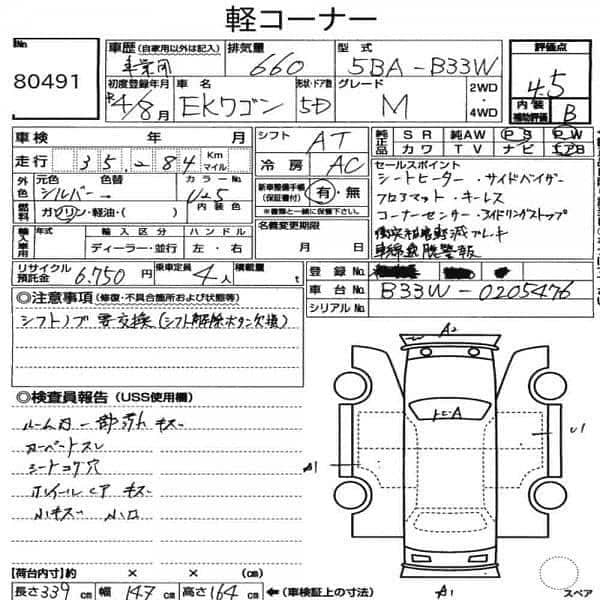 軽コーナー
No. 80491
車歴 (自家用以外は記入)
事業用
排気量 660
型式 5BA-B33W
評価点 4.5
内装補助評価 B
初度登録年月 R4/8月
車名 EKワゴン
形状・ドア数 5D
グレード M
2WD・4WD
車検 年 月
シフト AT
純正品 SR 純AW PS PW
カワ TV ナビ エアB
走行 35,284 Km マイル
冷房 AC
外色 元色 シルバー 色替
カラーNo. U25
内装色
燃料 ガソリン・軽油・( )
新車整備手帳 (保証書付) 有・無
※書類と一緒に保管して下さい。
セールスポイント
シートヒーター・サイドバイザー
フロアマット・キーレス
コーナーセンサー・アイドリングストップ
衝突被害軽減ブレーキ
車線逸脱警報
輸入車用 年式 輸入区分 ハンドル
ディーラー・並行 左・右
名義変更期限 月 日
リサイクル預託金 6,750円
乗車定員 4人
積載量 t
登録No.
車台No. B33W-0205476
シリアルNo.
◎注意事項 (修復・不具合箇所および状態等)
シフトノブ要交換(シフト解除ボタン欠損)
◎検査員報告 (USS使用欄)
ルーム内一部汚れ キズ
カーペートスレ
シートコゲ穴
ホイールCア キズ
小キズ 小凹
A2
ヒビA
U1
A1
A1
スペア
【荷台内寸】約 × × (cm)
長さ339cm 幅147cm 高さ164cm ←(車検証上の寸法)